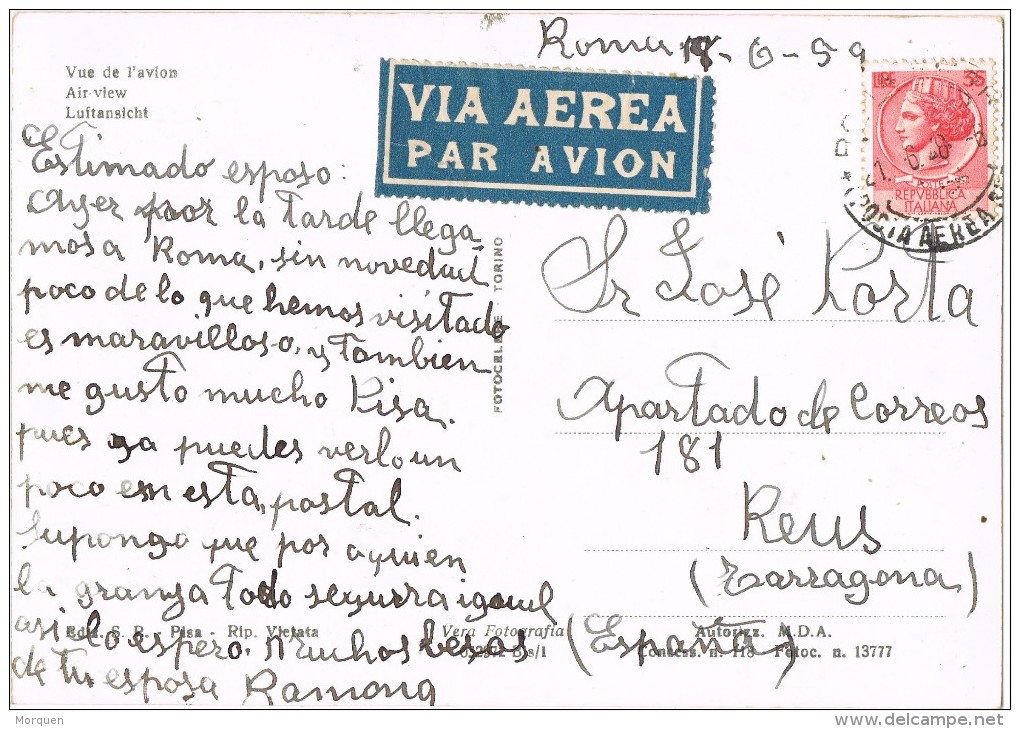 Roma 18-6-59
Vue de l'avion
Air-view
Luftansicht
VIA AEREA
PAR AVION
LIRE 35
POSTE
REPVBBLICA
ITALIANA
POSTA AEREA
Estimado esposo:
Ayer por la tarde llega-
mos a Roma, sin novedad
poco de lo que hemos visitado
es maravilloso, y tambien
me gusto mucho Pisa.
pues ya puedes verlo un
poco em esta, postal.
Supongo que por aquien
la granja todo seguirra igaul
asi lo espero, Muchos besos
de tu esposa Ramona
FOTOCELERE TORINO
Sr José Porta
Apartado de Correos
181
Reus
(Tarragona)
(España)
Ediz. S. R. - Pisa - Rip. Vietata
Vera Fotografia
Autorizz. M.D.A.
Concess. n. 118 - Fotoc. n. 13777
Morquen
delcampe.net